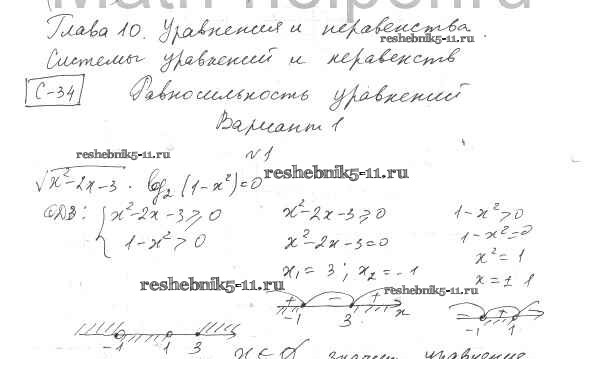 Глава 10. Уравнения и неравенства.
reshebnik5-11.ru
Системы уравнений и неравенств
С-34 Равносильность уравнений
Вариант 1
reshebnik5-11.ru
№1
reshebnik5-11.ru
√x²-2x-3 · log₂(1-x²)=0
ОДЗ: { x²-2x-3≥0
1-x²>0
x²-2x-3≥0
x²-2x-3=0
x₁=3; x₂=-1
1-x²>0
1-x²=0
x²=1
x=±1
reshebnik5-11.ru
reshebnik5-11.ru
+ - +
-1 3 x
+
-1 1
-1 1 3
x∈∅ значит уравнение